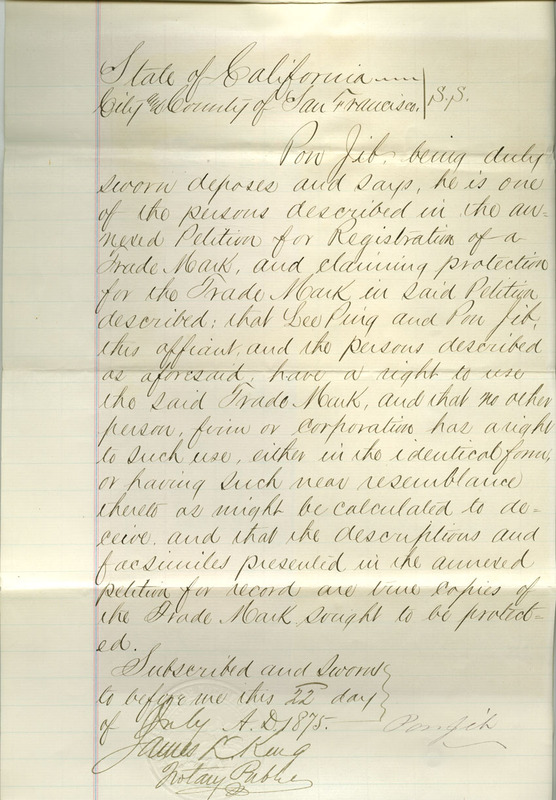 State of California
City and County of San Francisco. } S.S.
Pon Jib, being duly
sworn deposes and says, he is one
of the persons described in the an=
nexed Petition for Registration of a
Trade Mark, and claiming protection
for the Trade Mark in said Petition
described; that Lee Ping and Pon Jib,
this affiant, and the persons described
as aforesaid, have a right to use
the said Trade Mark, and that no other
person, firm or corporation has a right
to such use, either in the identical form,
or having such near resemblance
thereto as might be calculated to de=
ceive. and that the descriptions and
facsimiles presented in the annexed
petition for record are true copies of
the Trade Mark sought to be protect=
ed.
Subscribed and sworn
to before me this 22 day
of July A.D. 1875.
Pon Jib
James L. King
Notary Public